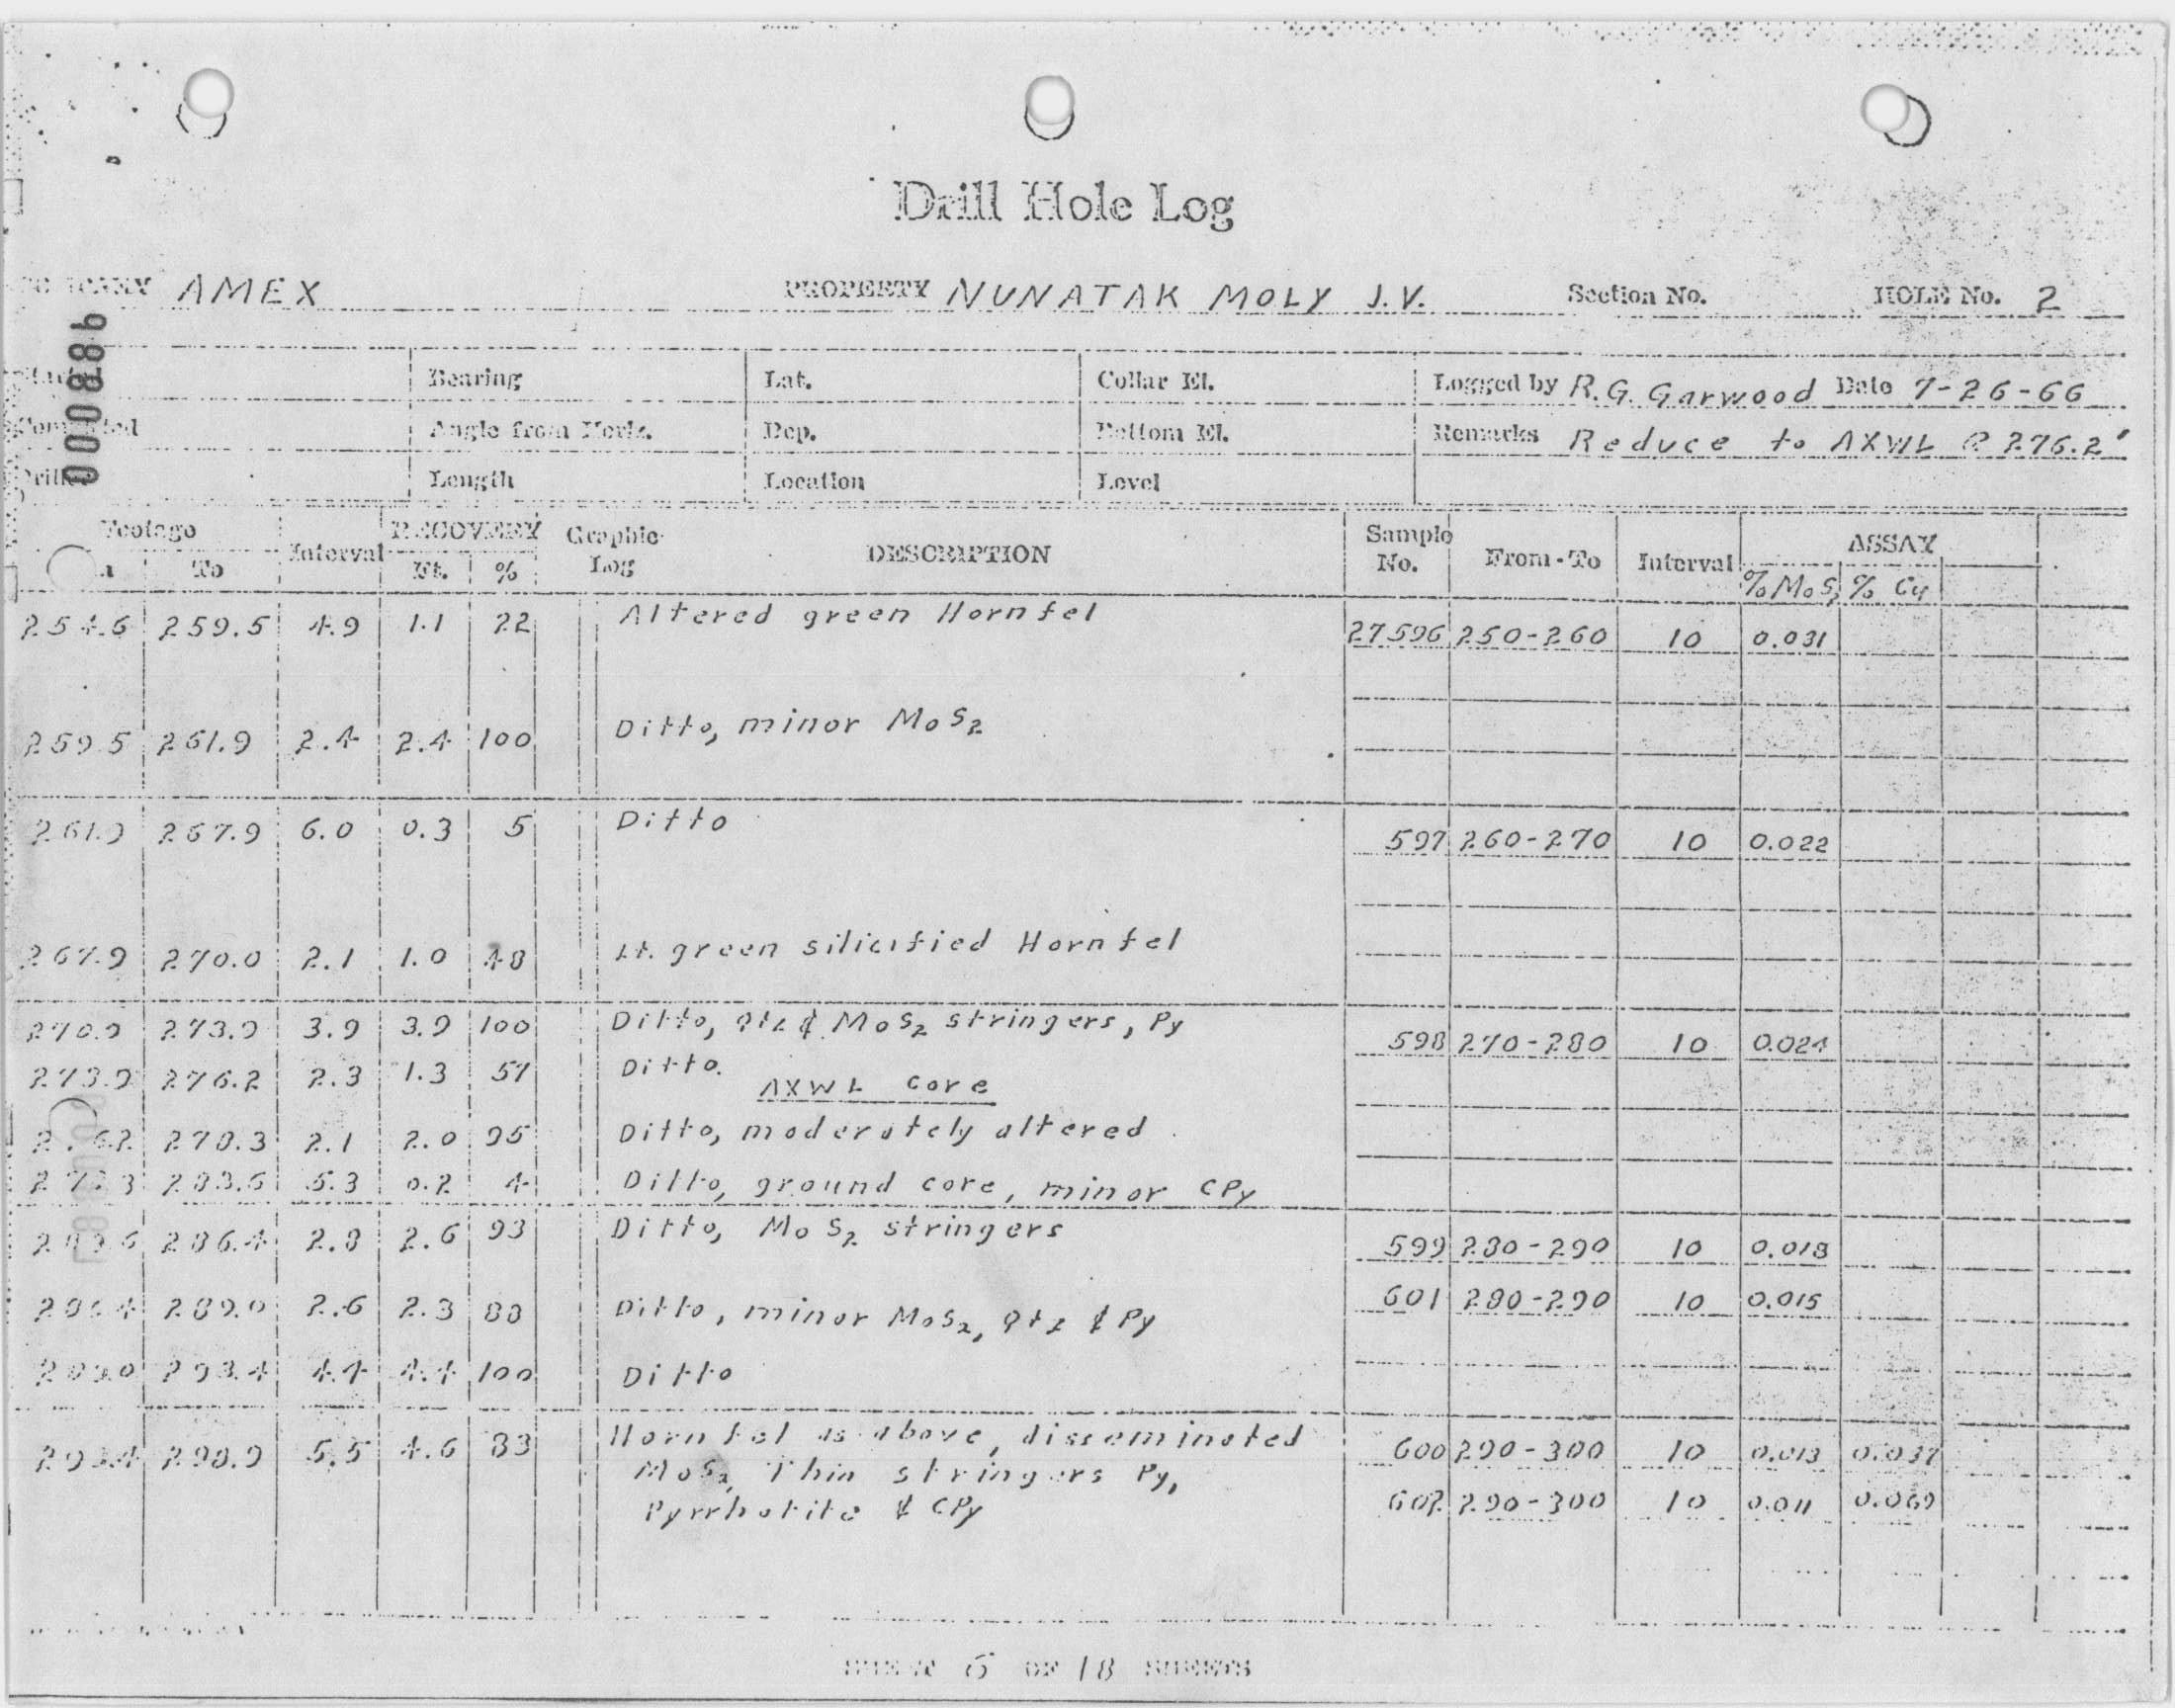 Drill Hole Log
COMPANY AMEX PROPERTY NUNATAK MOLY J.V. Section No. HOLE No. 2
000886
Bearing Lat. Collar El. Logged by R.G. Garwood Date 7-26-66
Completed Angle from Horiz. Dep. Bottom El. Remarks Reduce to AXWL @ 276.2'
Length Location Level
Footage Interval RECOVERY Graphic Log DESCRIPTION Sample No. From-To Interval ASSAY
To Ft. % %MoS2 % Cu
254.6 259.5 4.9 1.1 22 Altered green Hornfel 27596 250-260 10 0.031
259.5 261.9 2.4 2.4 100 Ditto, minor MoS2
261.9 267.9 6.0 0.3 5 Ditto 597 260-270 10 0.022
267.9 270.0 2.1 1.0 48 Lt. green silicified Hornfel
270.0 273.9 3.9 3.9 100 Ditto, qtz & MoS2 stringers, Py 598 270-280 10 0.024
273.9 276.2 2.3 1.3 57 Ditto.
AXWL core
276.2 278.3 2.1 2.0 95 Ditto, moderately altered
278.3 283.6 5.3 0.2 4 Ditto, ground core, minor CPy
283.6 286.4 2.8 2.6 93 Ditto, MoS2 stringers 599 280-290 10 0.018
286.4 289.0 2.6 2.3 88 Ditto, minor MoS2, qtz & Py 601 280-290 10 0.015
289.0 293.4 4.4 4.4 100 Ditto
293.4 298.9 5.5 4.6 83 Hornfel as above, disseminated 600 290-300 10 0.013 0.037
MoS2, Thin stringers Py,
Pyrrhotite & CPy 602 290-300 10 0.011 0.069
SHEET 6 OF 18 SHEETS